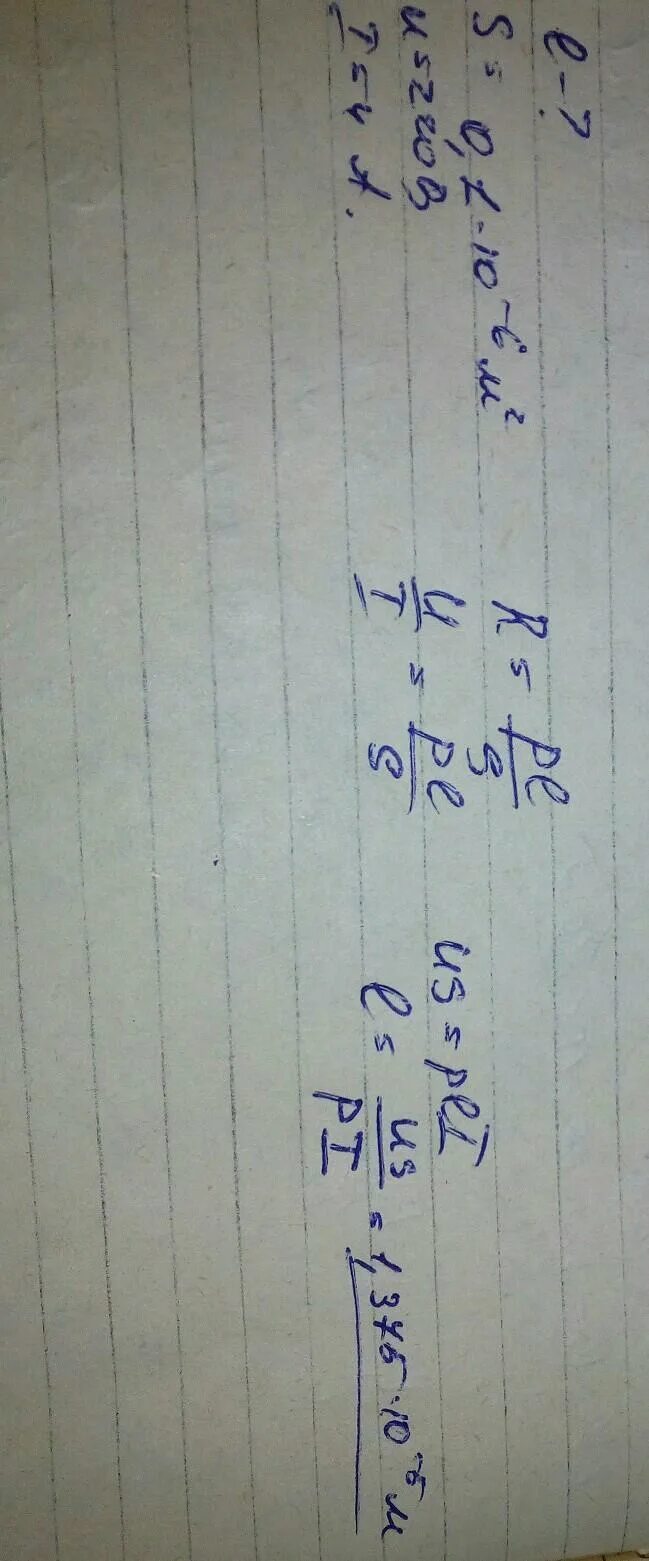 l - ?
S = 0,1 · 10⁻⁶ м²
U = 220 В
I = 4 А.
R = ρl/S
U/I = ρl/S
US = ρlI
l = US/ρI = 1,375 · 10⁻⁵ м